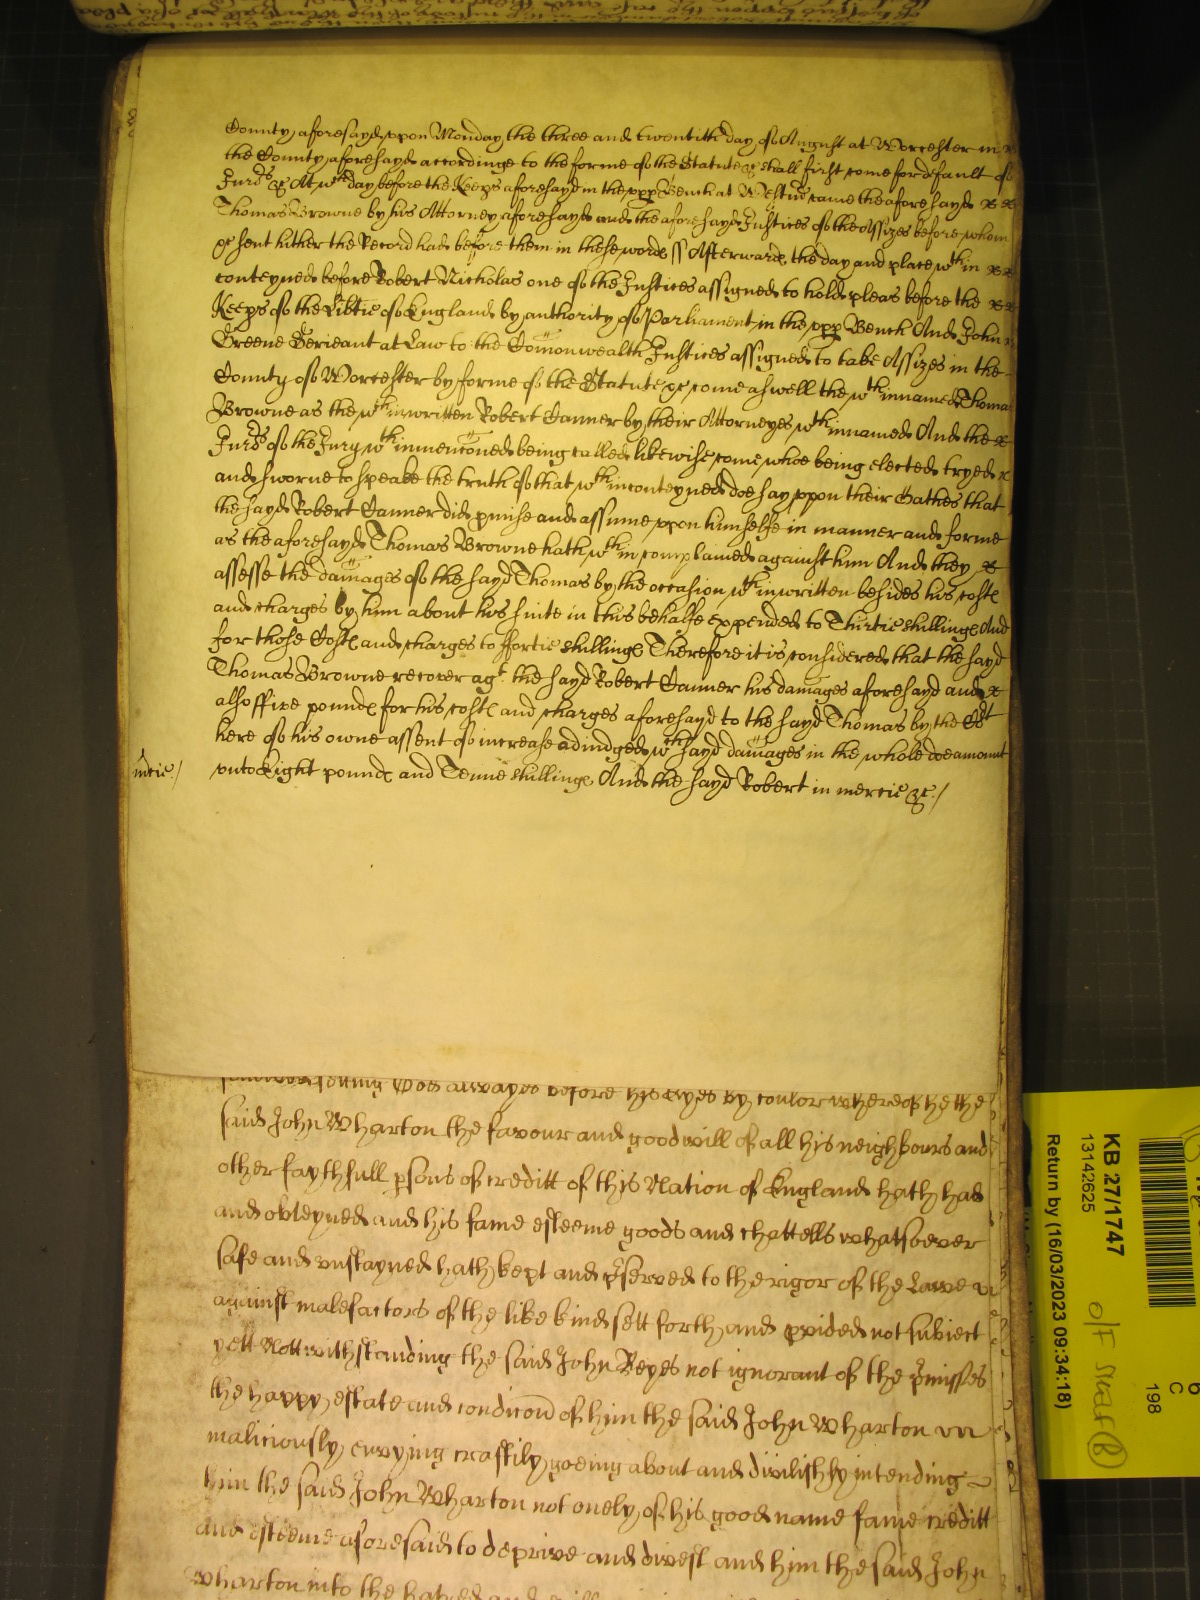 County aforesayd vppon Monday the three and twentith day of August at Worcester in
the County aforesayd accordinge to the forme of the Statute &c shall first come for default of
Jurds &c At wch day before the Keeps aforesayd in the vpp Bench at Westmr came the aforesayd
Thomas Browne by his Attorney aforesayd and the aforesayd Justices of the Assizes before whom
&c sent hither the Record had before them in these words ss Afterwards the day and place wthin
conteyned before Robert Nicholas one of the Justices assigned to hold pleas before the
Keeps of the Libtie of England by authority of Parliament in the vpp Bench And John
Greene Serieant at Law to the Comonwealth Justices assigned to take Assizes in the
County of Worcester by forme of the Statute &c come aswell the wthinnamed Thomas
Browne as the wthinwritten Robert Canner by their Attorneyes wthinnamed And the
Jurds of the Jury wthinmenconed being called likewise come whoe being elected tryed
and sworne to speake the truth of that wthinconteyned doe say vppon their Oathes that
the sayd Robert Canner did pmise and assume vppon himselfe in manner and forme
as the aforesayd Thomas Browne hath wthin complained against him And they
assesse the damages of the sayd Thomas by the occasion wthinwritten besides his costs
and charges by him about his suite in this behalfe expended to Thirtie shillings And
for those Costs and charges to ffortie shillings Therefore it is considered that the sayd
Thomas Browne recover agt the sayd Robert Canner his damages aforesayd and
also ffive pounds for his costs and charges aforesayd to the sayd Thomas by the Ct
here of his owne assent of increase adiudged wch sayd damages in the whole doe amount
mcie /
vnto Eight pounds and Tenne shillings And the sayd Robert in mercie &c /
setting God alwayes before his eyes by coulor whereof he the
said John Wharton the favour and good will of all his neighbours and
other faythfull psons of creditt of this Nation of England hath had
and obteyned and his fame esteeme goods and chattells whatsoever
safe and vnstayned hath kept and pserved to the rigor of the Lawe
against malefactors of the like kind sett forth and pvided not subiect
yett Nottwithstanding the said John Keyes not ignorant of the pmisses
the happy estate and condicon of him the said John Wharton
maliciously envying craftily goeing about and divilishly intending
him the said John Wharton not onely of his good name fame creditt
and esteeme aforesaid to deprive and divest and him the said John
Wharton into the hatred and
KB 27/1747
13142625
Return by (16/03/2023 09:34:18)
O/F
C
198